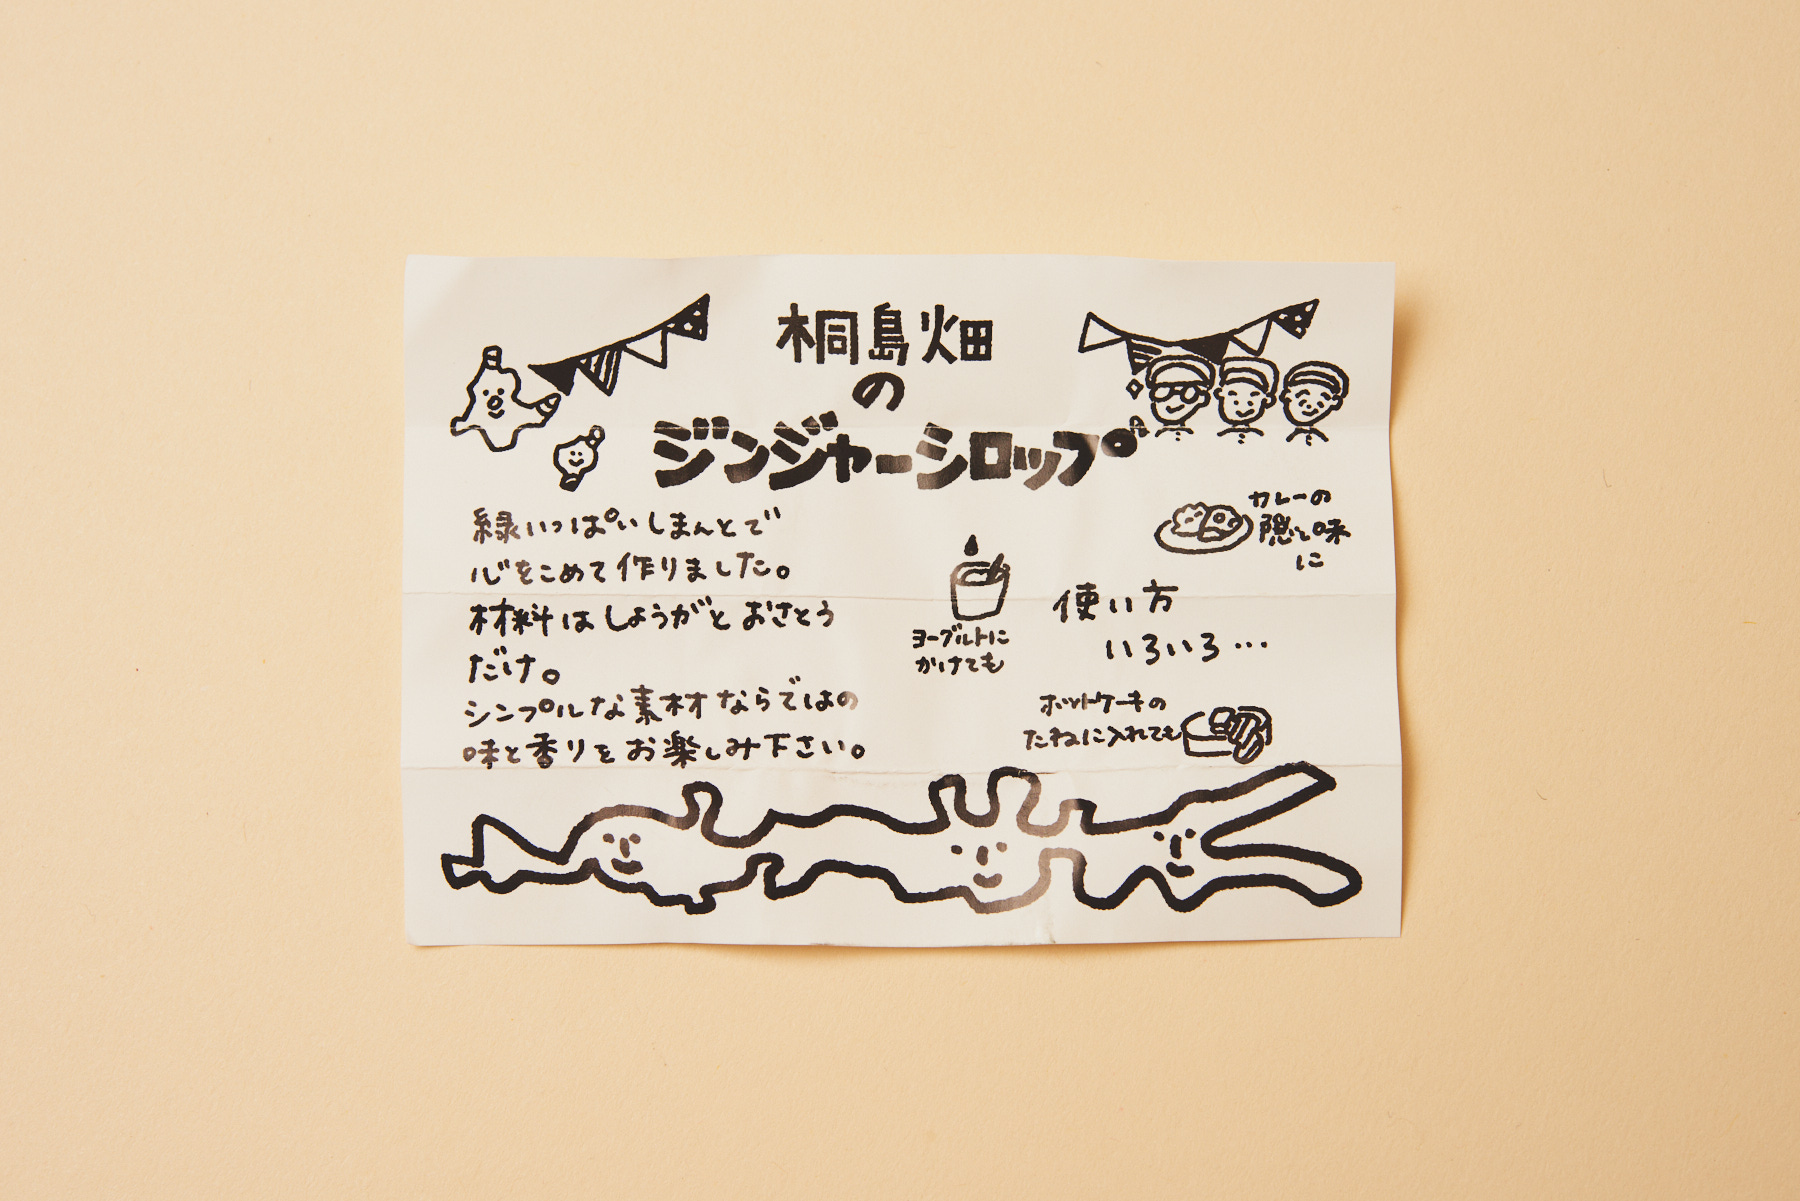 桐島畑
の
ジンジャーシロップ
緑いっぱいしまんとで
心をこめて作りました。
材料はしょうがとおさとう
だけ。
シンプルな素材ならではの
味と香りをお楽しみ下さい。
カレーの
隠し味
に
使い方
いろいろ…
ヨーグルトに
かけても
ホットケーキの
たねに入れても